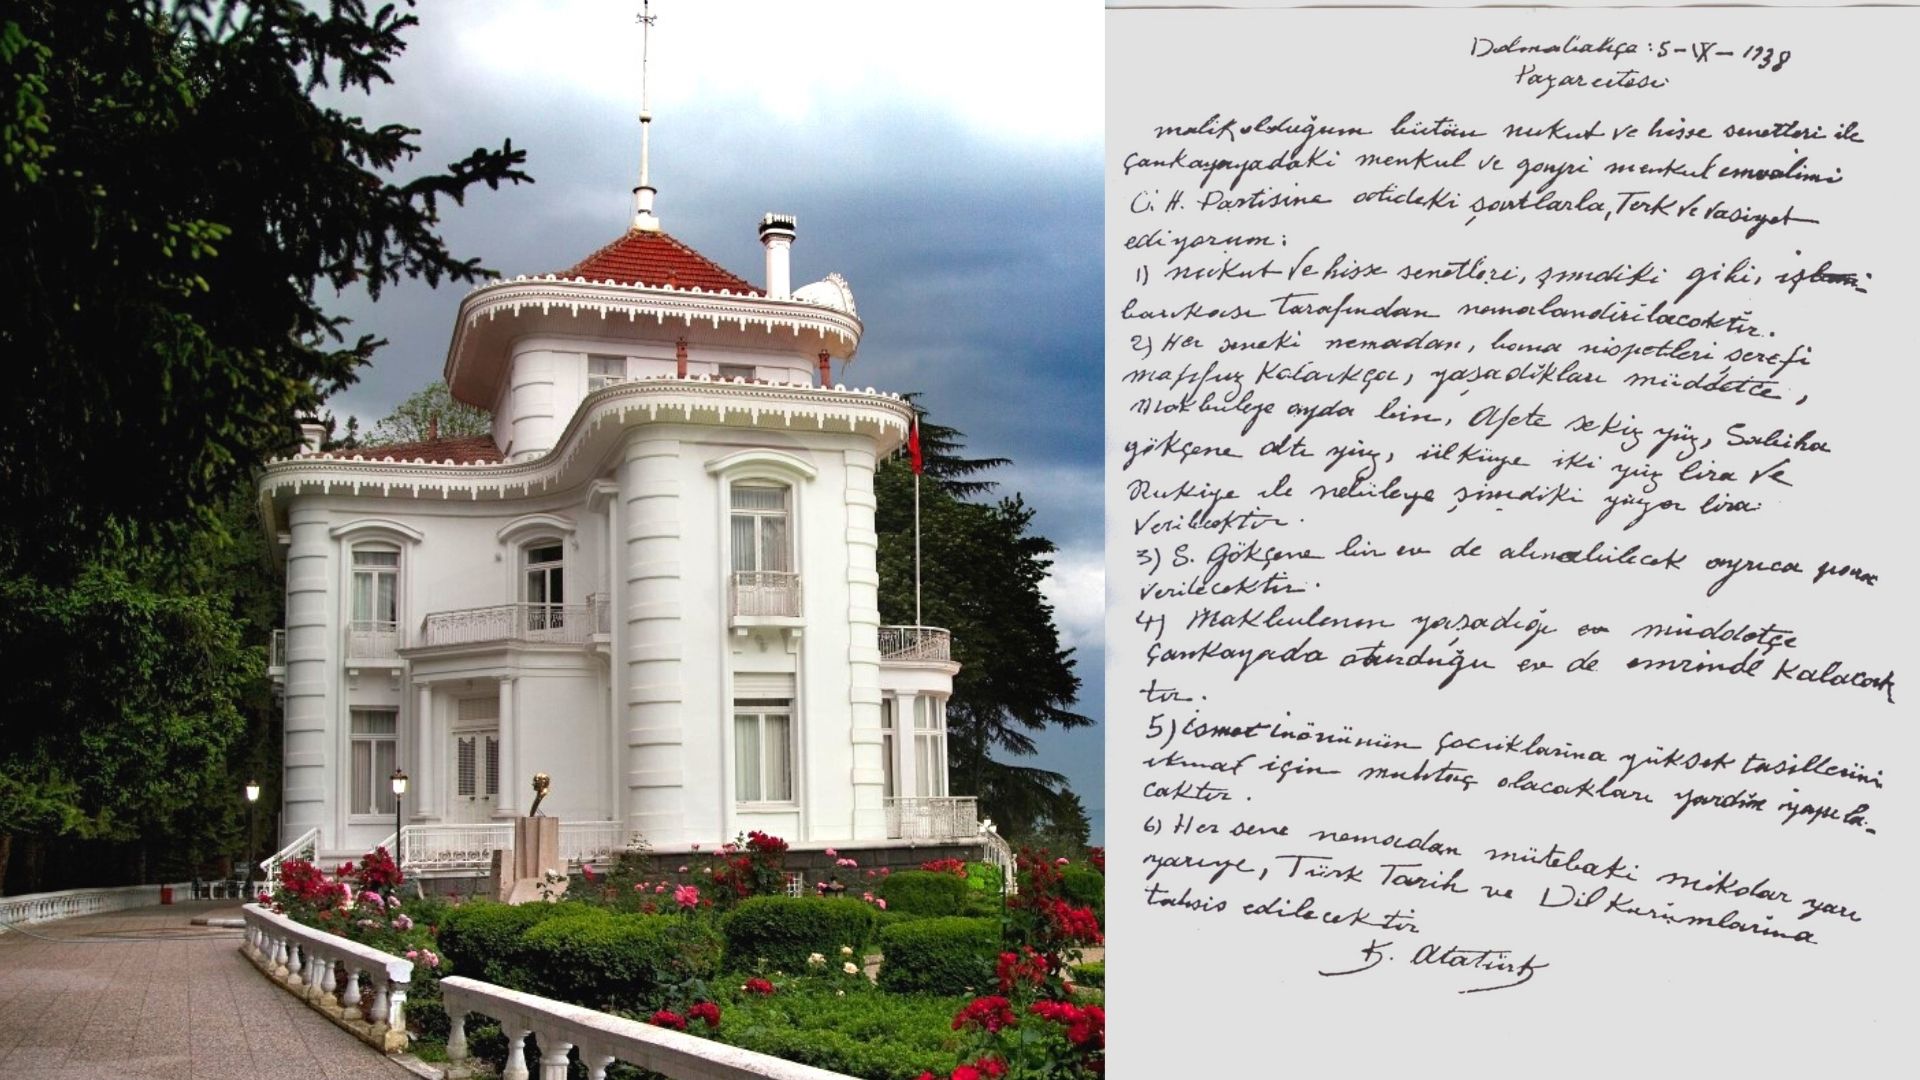 Dolmabahçe: 5-IX-1938
Pazarertesi
malik olduğum bütün nukut ve hisse senetleri ile
Çankayayadaki menkul ve gayri menkul emvalimi
C. H. Partisine atideki şartlarla, Terk ve vasiyet
ediyorum:
1) nukut ve hisse senetleri, şimdiki gibi, iş
bankası tarafından nemalandırılacaktır.
2) Her seneki nemadan, bana nispetleri şerefi
mahfuz kaldıkça, yaşadıkları müddetce,
Makbuleye ayda bin, Afete sekiz yüz, Sabiha
gökçene altı yüz, ülküye iki yüz lira ve
Rukiye ile nebileye şimdiki yüzer lira
verilecektir.
3) S. Gökçene bir ev de alınabilecek ayrıca para
verilecektir.
4) Makbulenin yaşadığı müddetçe
Çankayada oturduğu ev de emrinde kalacak
tır.
5) ismet inönünün çocuklarına yüksek tasillerini
ikmal için muhtaç olacakları yardım yapıla-
caktır.
6) Her sene nemadan mütebaki mikdar yarı
yarıya, Türk Tarih ve Dil Kurumlarına
tahsis edilecektir
K. Atatürk